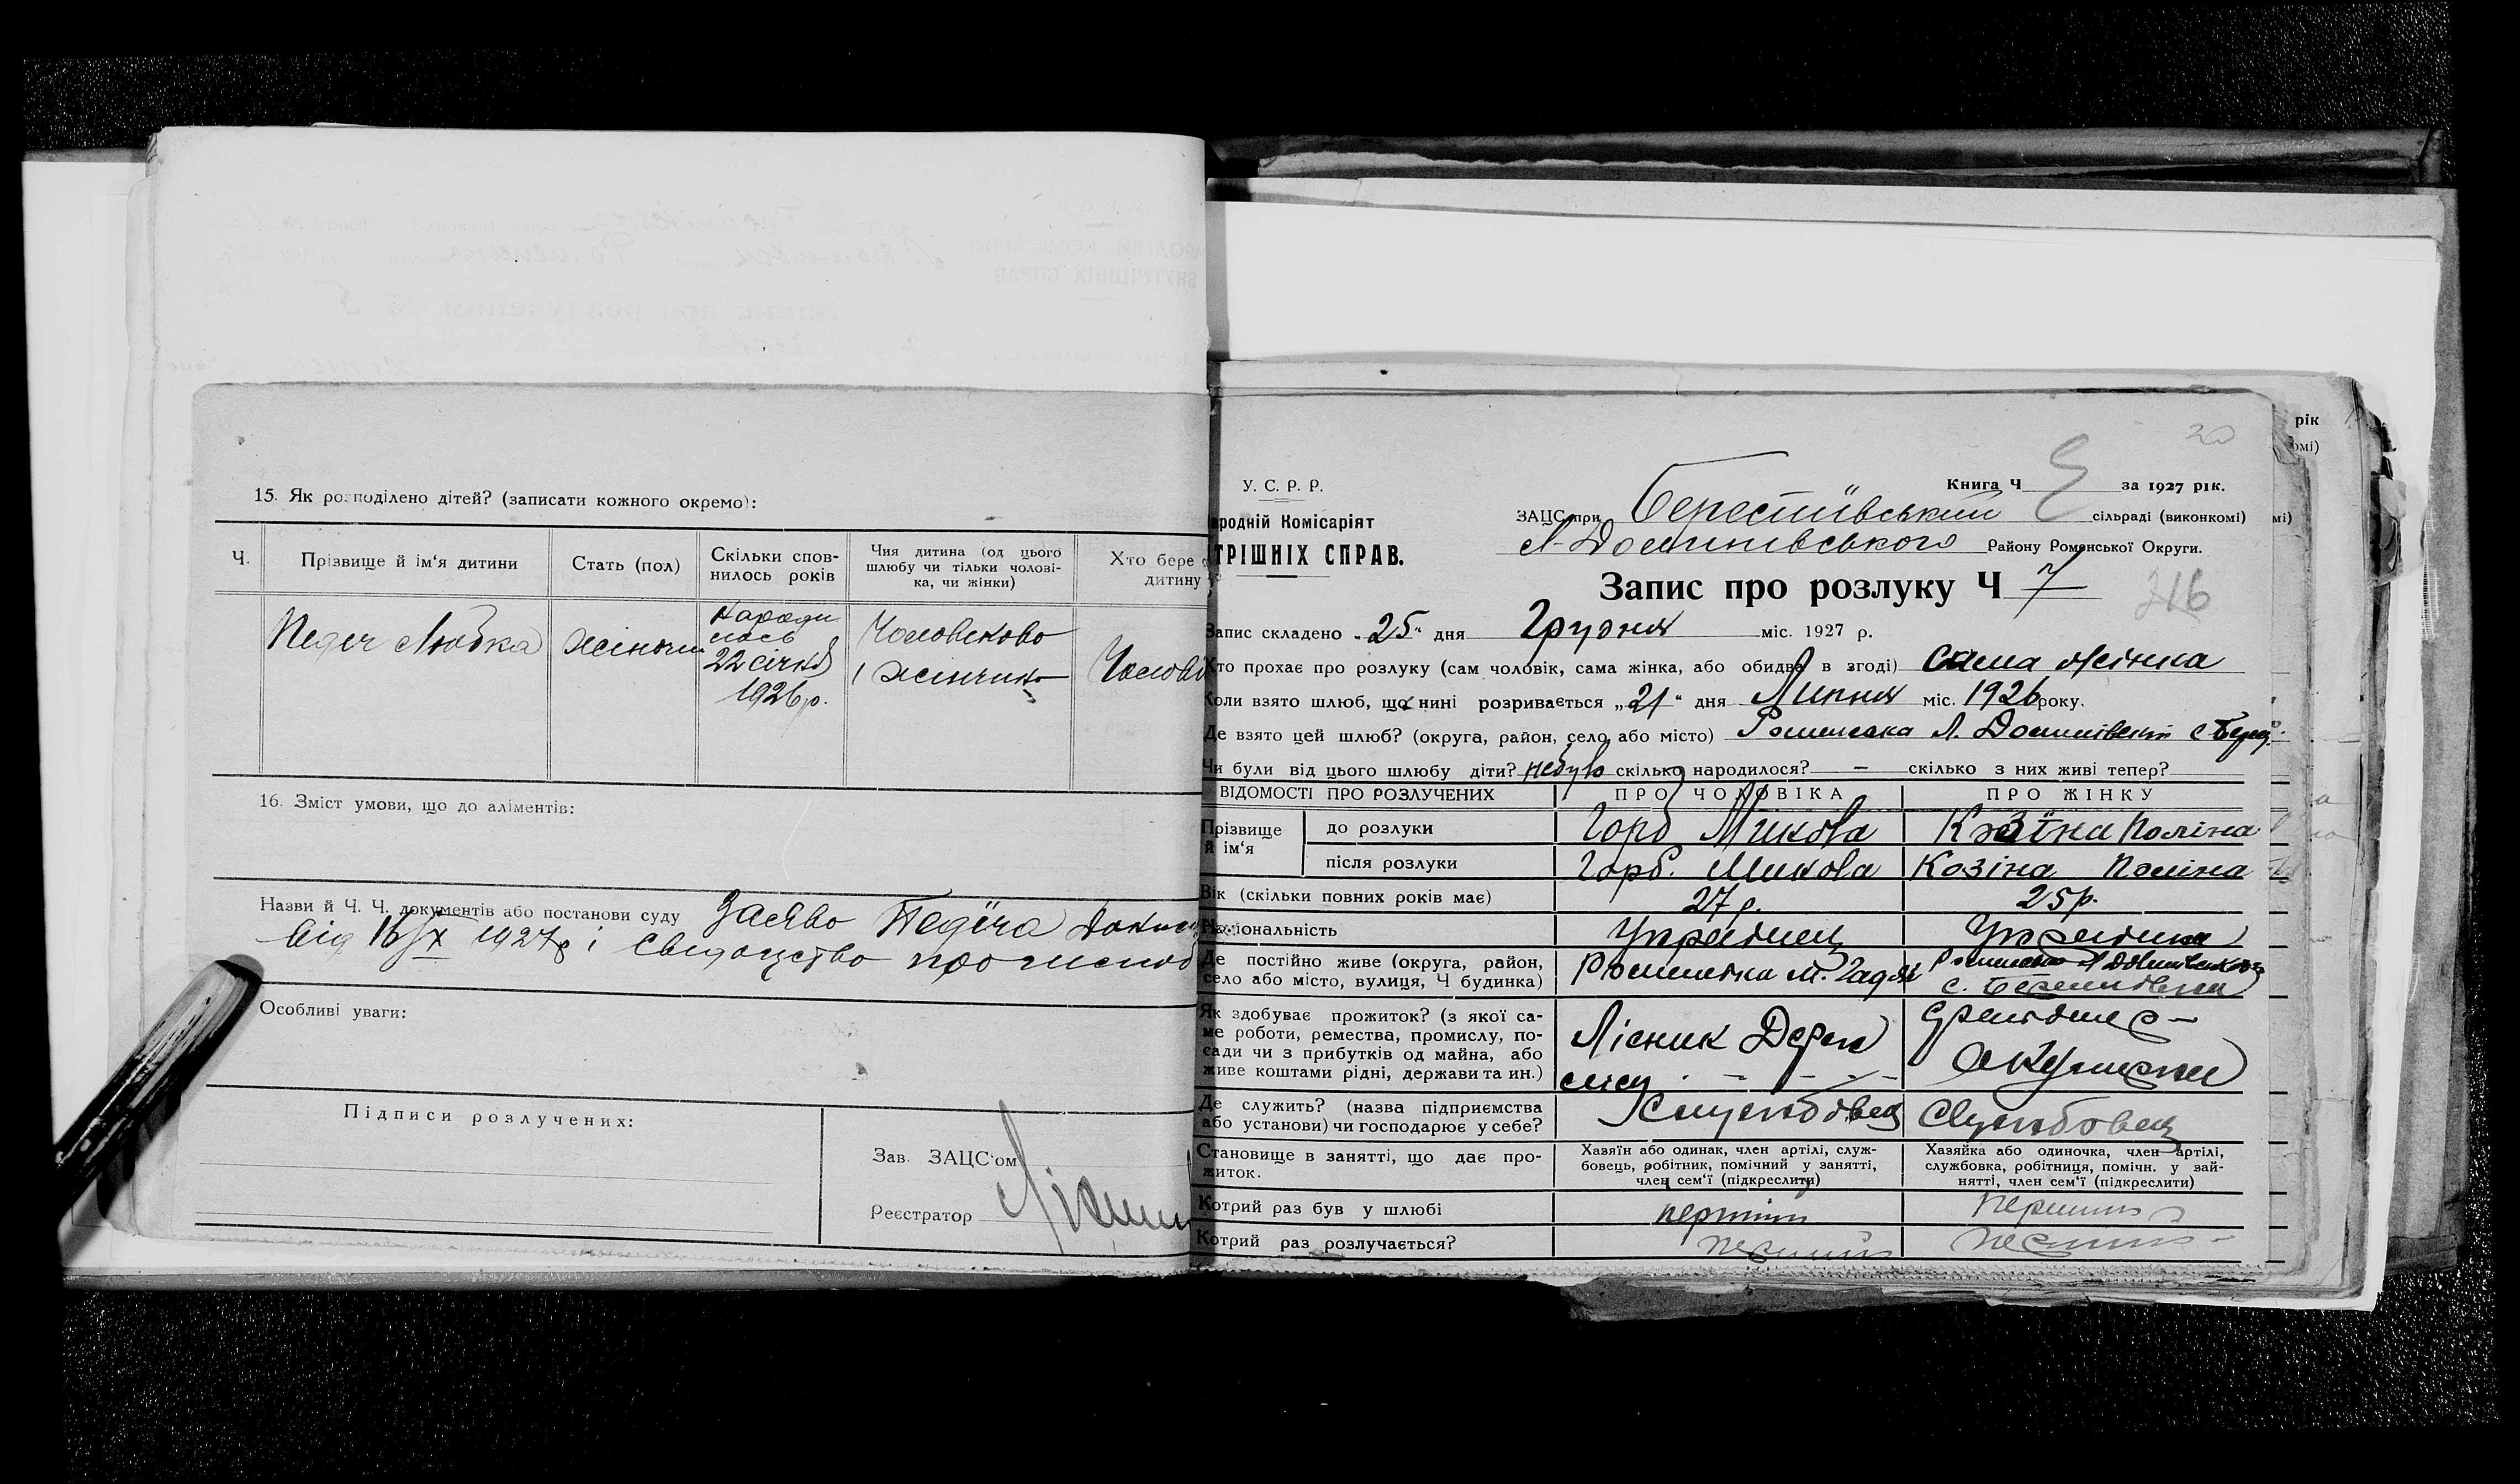 15. Як розподілено дітей? (записати кожного окремо):
Ч. Прізвище й ім'я дитини Стать (пол) Скільки сповнилось років Чия дитина (од цього шлюбу чи тільки чоловіка, чи жінки) Хто бере дитину
Педеч Любка жіноч Народилось 22 січня 1926 р. Чоловіково і жінчина Чолові
16. Зміст умови, що до аліментів:
Назви й Ч. Ч. документів або постанови суду Заєва Педіча
від 16/IX 1927 р і свидоцтво про
Особливі уваги:
Підписи розлучених:
Зав. ЗАЦС'ом
Реєстратор
рік
омі)
мі)
20
У. С. Р. Р.
Книга Ч за 1927 рік.
ародній Комісаріят
ТРІШНІХ СПРАВ.
ЗАЦС при Берестівський сільраді (виконкомі)
Району Роменської Округи.
Запис про розлуку Ч 7
216
Запис складено „25" дня Грудня міс. 1927 р.
Хто прохає про розлуку (сам чоловік, сама жінка, або обидва в згоді) сама жінка
Коли взято шлюб, що нині розривається „21" дня Липня міс. 1926 року.
Де взято цей шлюб? (округа, район, село або місто) Роменська Л. Долинівський с Берес.
Чи були від цього шлюбу діти? небуло скілько народилося? — скілько з них живі тепер?
ВІДОМОСТІ ПРО РОЗЛУЧЕНИХ ПРО ЧОЛОВІКА ПРО ЖІНКУ
Прізвище й ім'я до розлуки Горб Микола Козіна Поліна
після розлуки Горб. Микола Козіна Поліна
Вік (скільки повних років має) 27 р. 25 р.
Національність Украінец Украінка
Де постійно живе (округа, район, село або місто, вулиця, Ч будинка) Роменська м. Гадяч Роменська с. Берестівка
Як здобуває прожиток? (з якої саме роботи, ремества, промислу, посади чи з прибутків од майна, або живе коштами рідні, держави та ин.) Лісник Держ лісу Акушерки
Де служить? (назва підприємства або установи) чи господарює у себе? Службовец Службовец
Становище в занятті, що дає прожиток. Хазяїн або одинак, член артілі, службовець, робітник, помічний у занятті, член сем'ї (підкреслити) Хазяйка або одиночка, член артілі, службовка, робітниця, помічн. у зайнятті, член сем'ї (підкреслити)
Котрий раз був у шлюбі перший перший
Котрий раз розлучається? перший перший